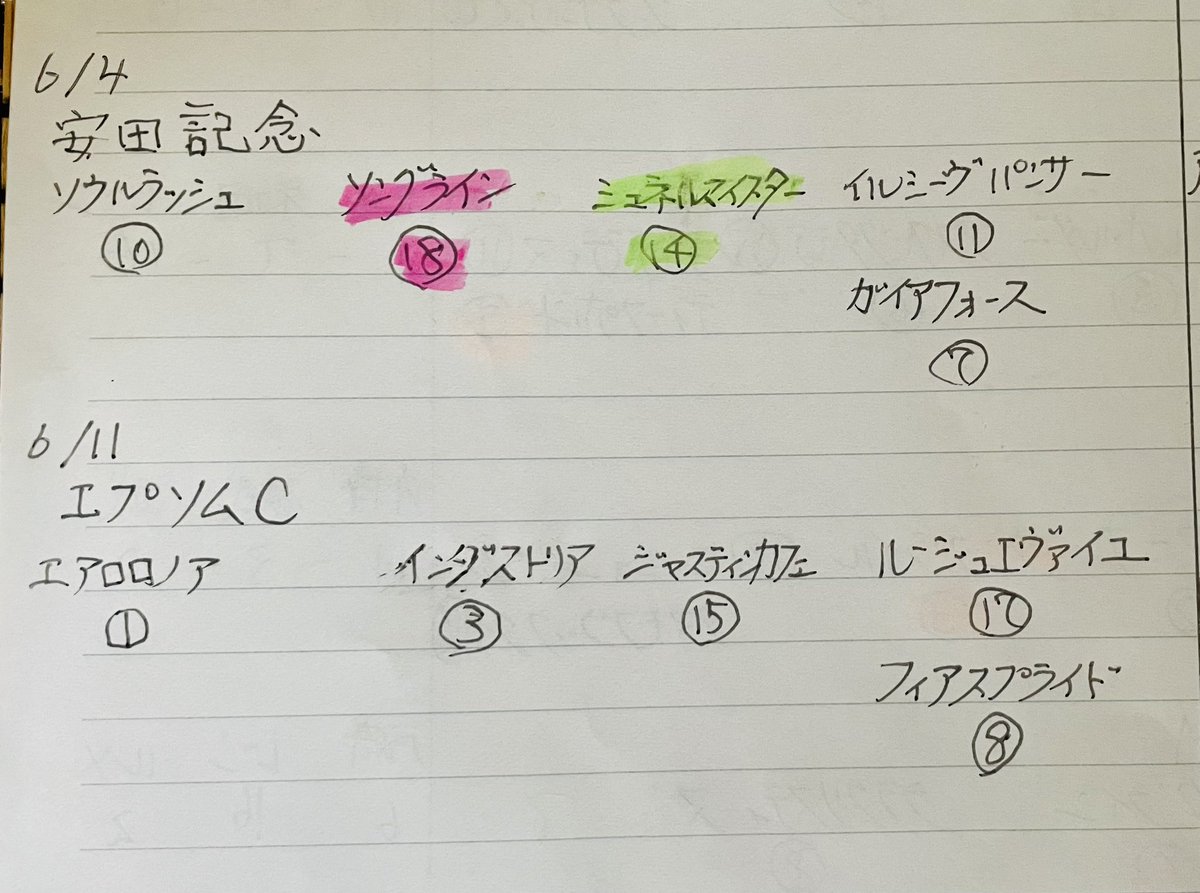 6/4
安田記念
ソウルラッシュ ソングライン シュネルマイスター イルミーヴパンサー
⑩ ⑱ ⑭ ⑪
ガイアフォース
⑦
6/11
エプソムC
エアロロノア インダストリア ジャスティンカフェ ルージュエヴァイユ
① ③ ⑮ ⑰
フィアスプライド
⑧